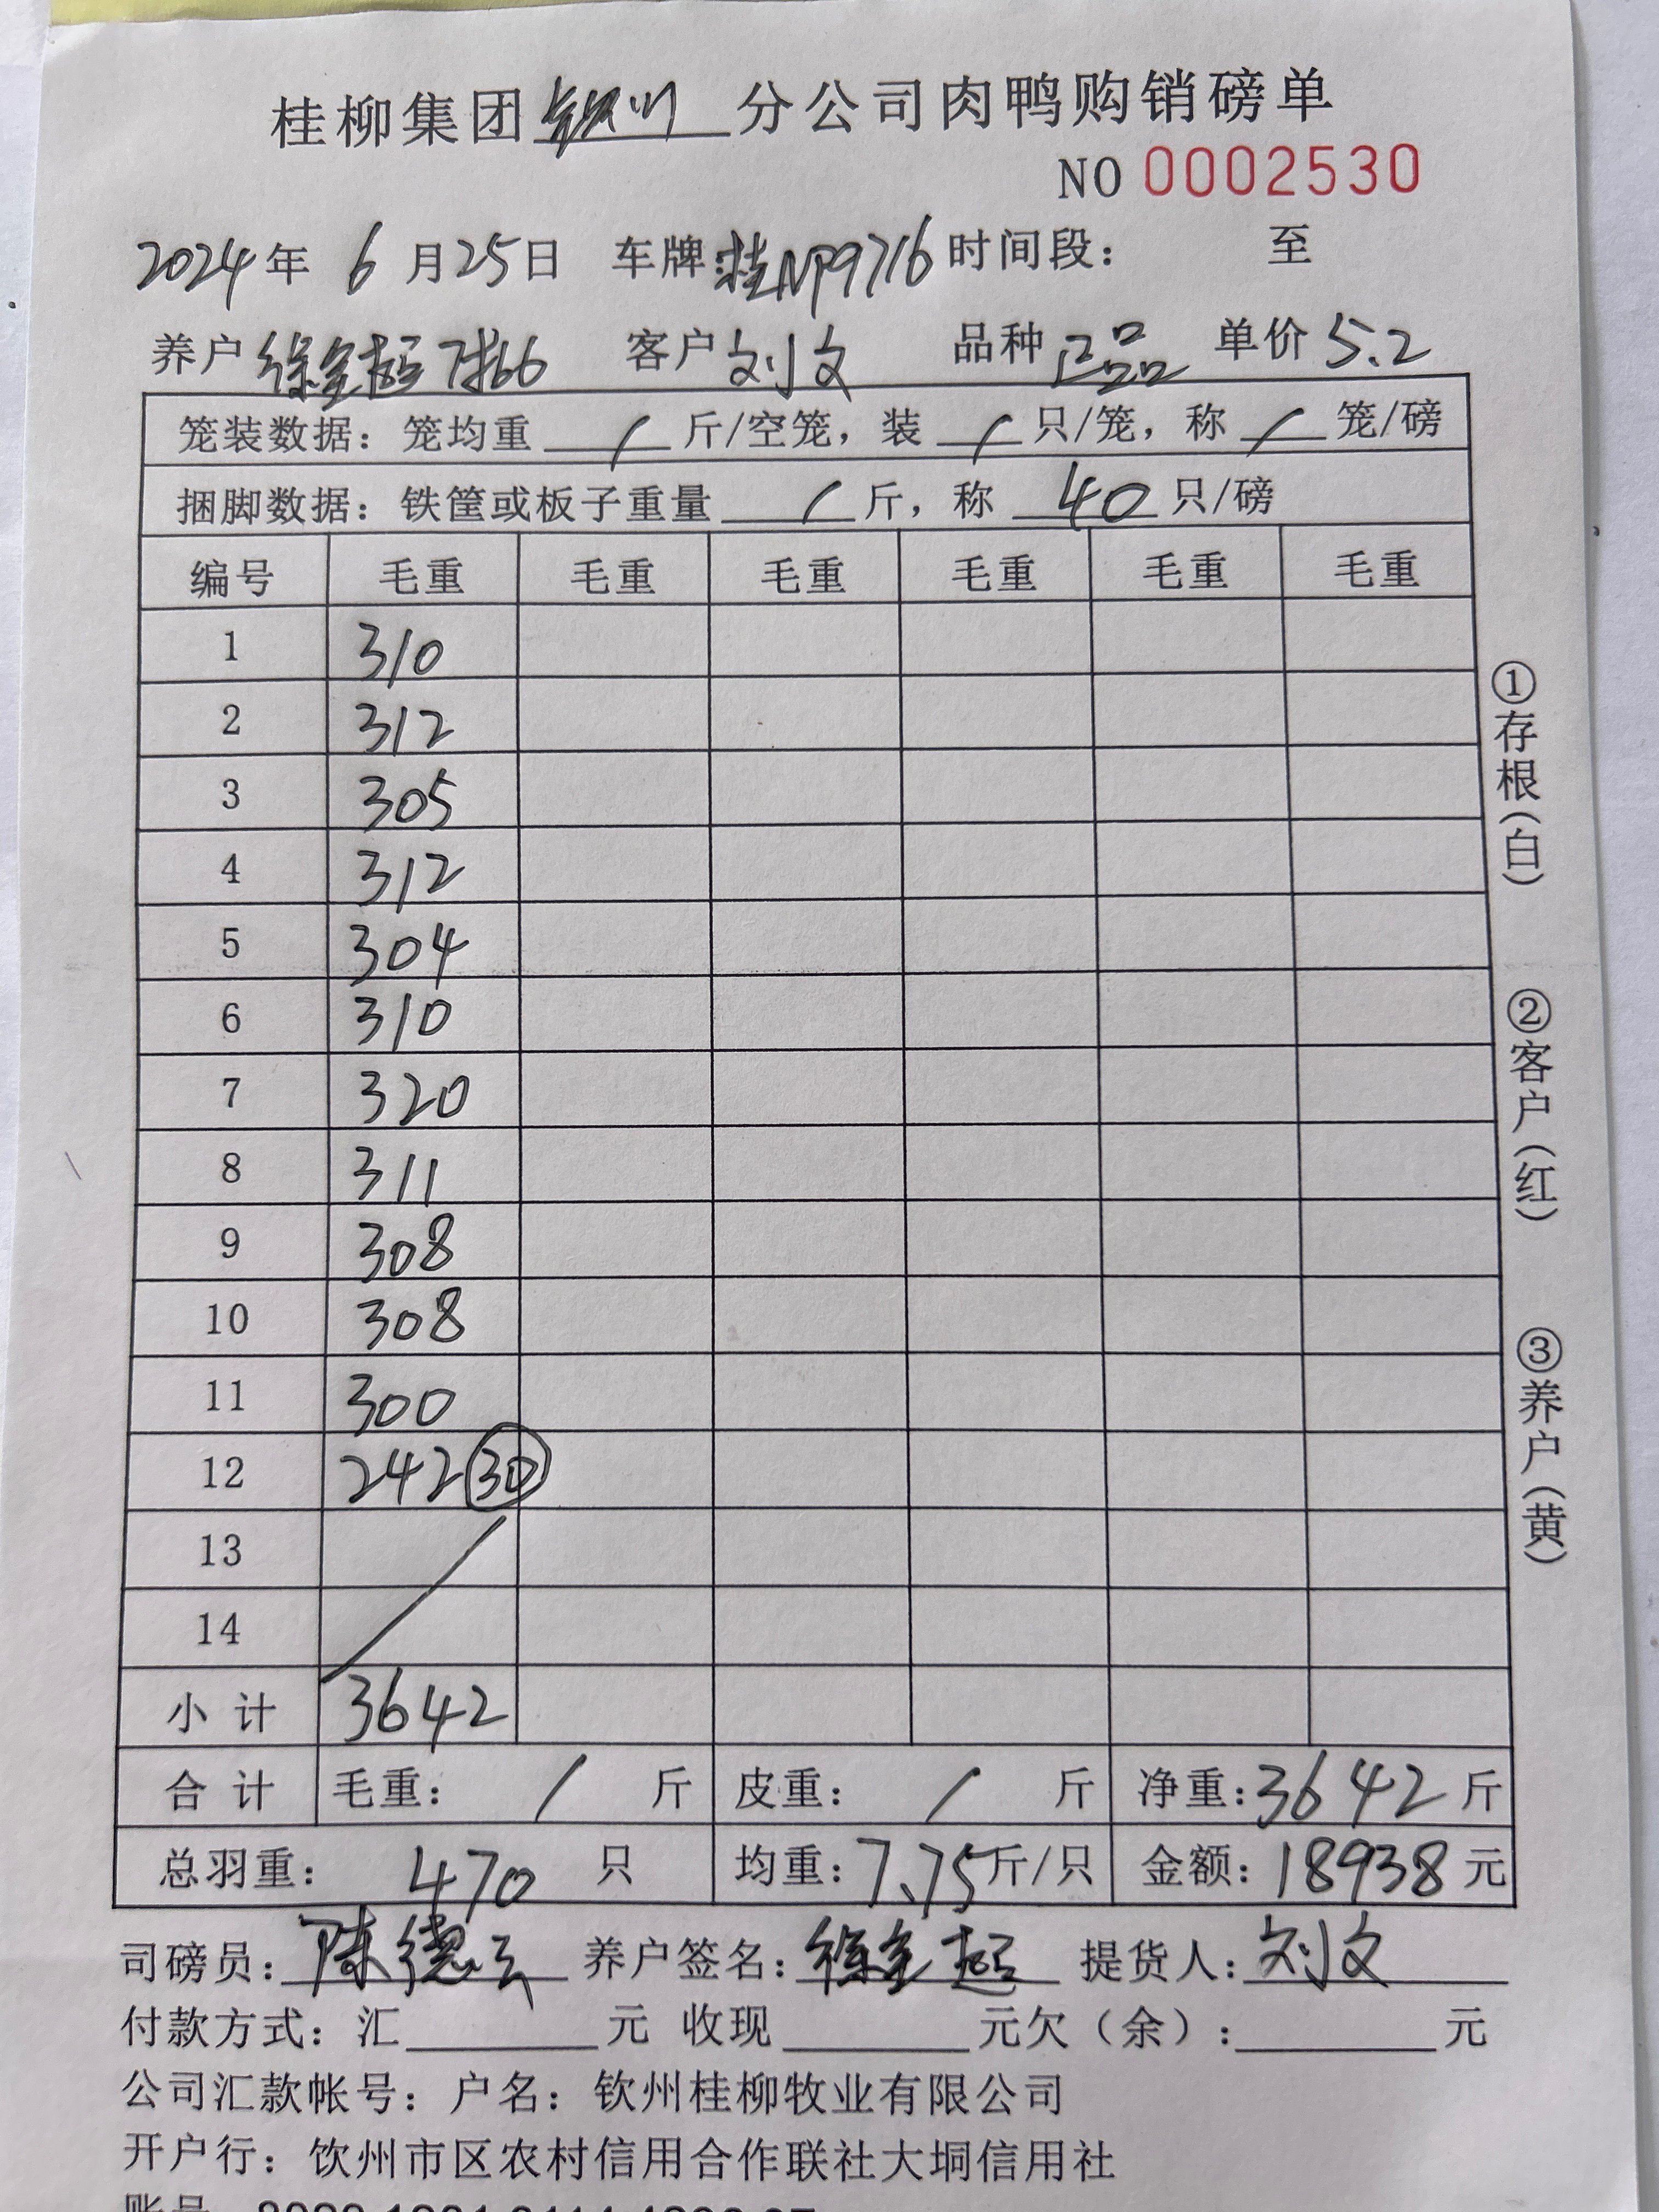 桂柳集团钦州分公司肉鸭购销磅单
NO 0002530
2024年 6 月25日 车牌:桂NP9716 时间段: 至
养户 徐全超 7批66 客户 刘文 品种 正品 单价 5.2
笼装数据:笼均重 / 斤/空笼,装 / 只/笼,称 / 笼/磅
捆脚数据:铁筐或板子重量 / 斤,称 40 只/磅
编号 毛重 毛重 毛重 毛重 毛重 毛重
1 310
2 312
3 305
4 312
5 304
6 310
7 320
8 311
9 308
10 308
11 300
12 242 30
13
14
小 计 3642
合 计 毛重: / 斤 皮重: / 斤 净重:3642 斤
总羽重: 470 只 均重:7.75斤/只 金额:18938 元
司磅员:陈德云 养户签名:徐全超 提货人:刘文
付款方式:汇 元 收现 元欠(余): 元
公司汇款帐号:户名:钦州桂柳牧业有限公司
开户行:钦州市区农村信用合作联社大垌信用社
①存根(白)
②客户(红)
③养户(黄)